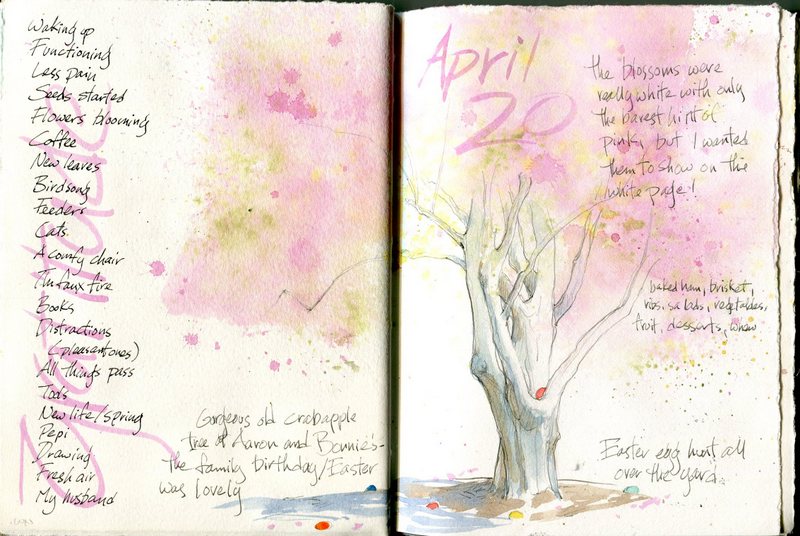 Gratitude
Waking up
Functioning
Less pain
Seeds started
Flowers blooming
Coffee
New leaves
Birdsong
Feeders
Cats
A comfy chair
The faux fire
Books
Distractions
(pleasant ones)
All things pass
Tools
New life/spring
Pepi
Drawing
Fresh air
My husband
Gorgeous old crabapple
tree of Aaron and Bonnie's -
the family birthday/Easter
was lovely
April
20
the blossoms were
really white with only
the barest hint of
pink, but I wanted
them to show on the
white page!
baked ham, brisket,
ribs, salads, vegetables,
fruit, desserts, whew
Easter egg hunt all
over the yard.